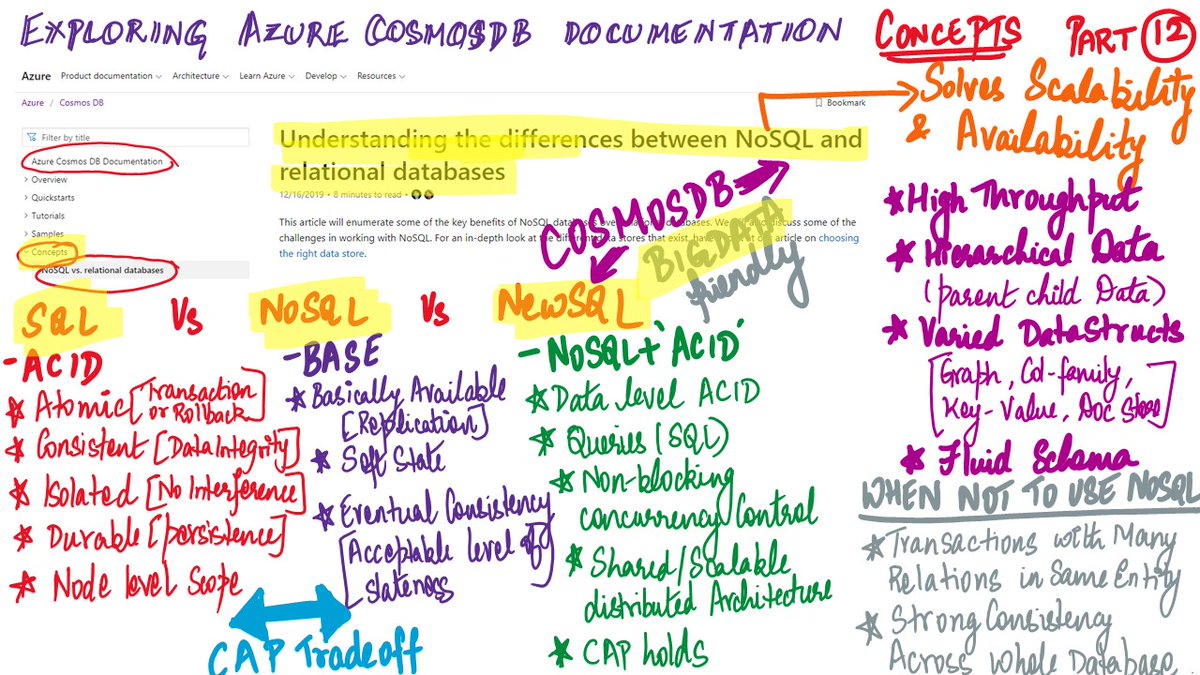 EXPLORING AZURE COSMOSDB DOCUMENTATION CONCEPTS PART 12
Azure Product documentation Architecture Learn Azure Develop Resources
Azure / Cosmos DB
Bookmark
Filter by title
Azure Cosmos DB Documentation
Overview
Quickstarts
Tutorials
Samples
Concepts
NoSQL vs. relational databases
Understanding the differences between NoSQL and
relational databases
12/16/2019 • 8 minutes to read •
This article will enumerate some of the key benefits of NoSQL databases over relational databases. We will also discuss some of the
challenges in working with NoSQL. For an in-depth look at the different data stores that exist, have a look at our article on choosing
the right data store.
COSMOSDB
BIGDATA
friendly
SQL Vs NoSQL Vs NewSQL
- ACID
Atomic [Transaction
or Rollback]
Consistent [Data Integrity]
Isolated [No Interference]
Durable [persistence]
Node level Scope
- BASE
Basically Available
[Replication]
Soft State
Eventual Consistency
[Acceptable level of
slateness]
CAP Tradeoff
- NoSQL + 'ACID'
Data level ACID
Queries (SQL)
Non-blocking
concurrency Control
Shared/Scalable
distributed Architecture
CAP holds
Solves Scalability
& Availability
High Throughput
Hierarchical Data
(parent child Data)
Varied DataStructs
[Graph, Col-family,
Key-Value, Doc Store]
Fluid Schema
WHEN NOT TO USE NoSQL
Transactions with Many
Relations in Same Entity
Strong Consistency
Across Whole Database